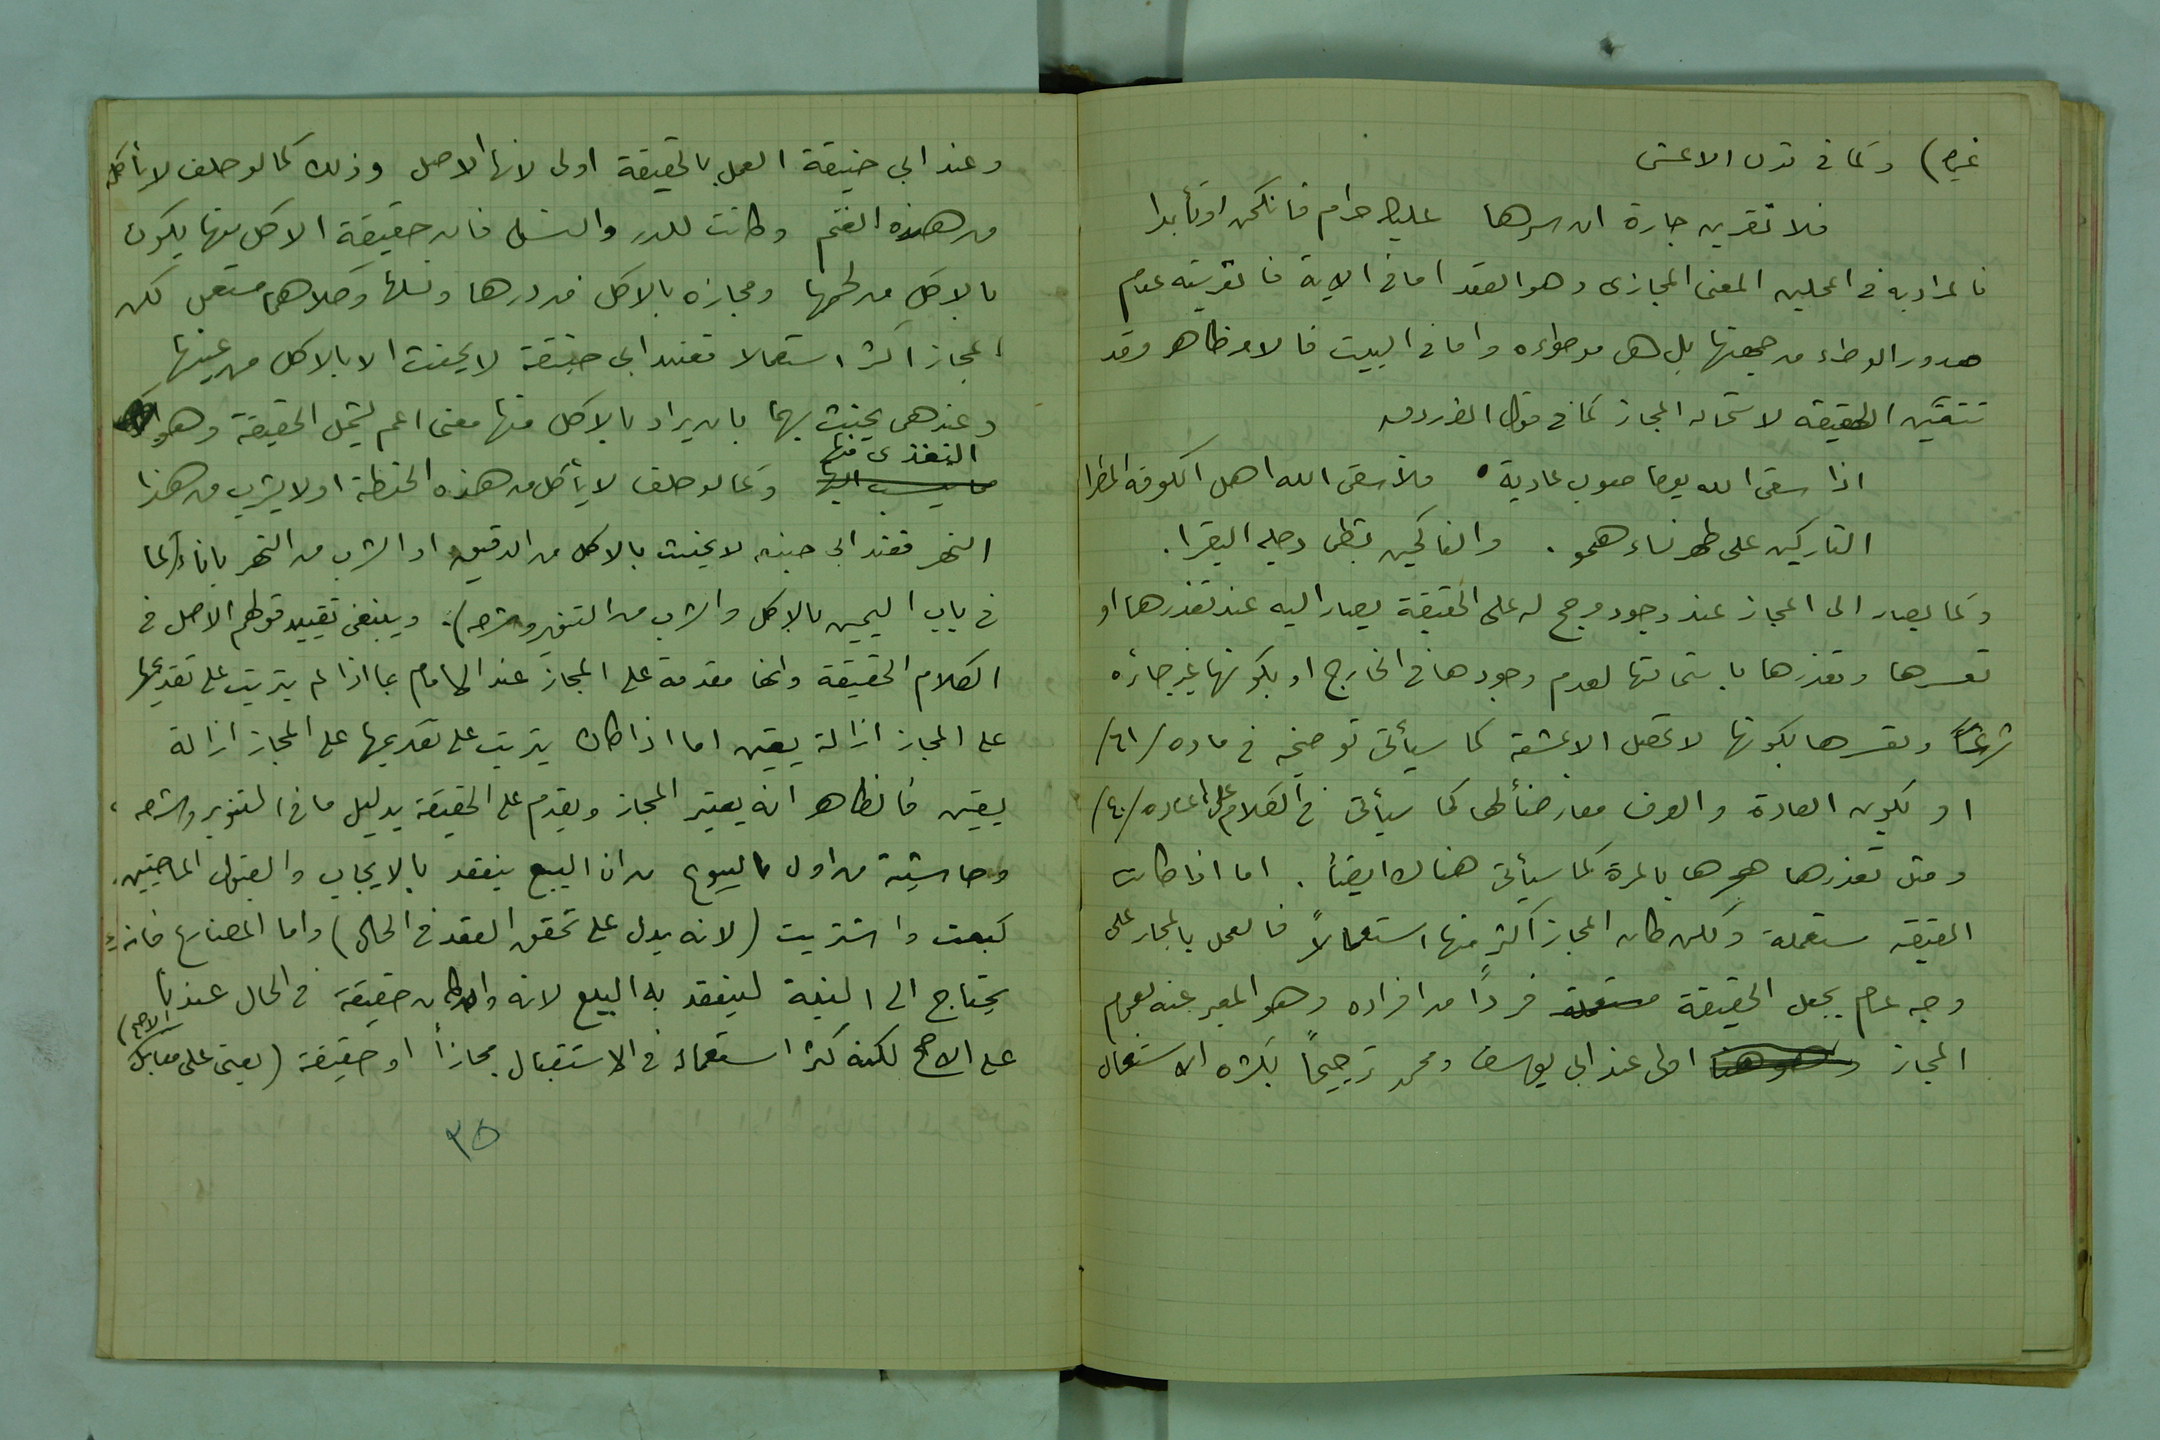 غيره) وكما في قول الاعشى
فلا تقربن جارة ان سرها عليك حرام فانكحن او تأبدا
فالمراد به في المحلين المعنى المجازي وهو العقد اما في الاية فالقرينة عدم
صدور الوطء من جهتها بل هي موطوءه واما في البيت فالامر ظاهر وقد
تتعين الحقيقة لاستحالة المجاز كما في قول الفرزدق
اذا سقى الله يوما صوب غادية فلا سقى الله اهل الكوفة المطرا
التاركين على طهر نساءهمو . والناكحين بشطي دجلة البقرا .
وكما يصار الى المجاز عند وجود مرجح له على الحقيقة يصار اليه عند تعذرها او
تعسرها وتعذرها باستحالتها لعدم وجودها في الخارج او بكونها غير جائزه
شرعاً وتعسرها بكونها لا تحصل الا بمشقة كما سيأتي توضيحه في ماده /٦١/
او بكون العادة والعرف معارضاً لها كما سيأتي في الكلام على الماده /٤٠/
ومثل تعذرها هجرها بالمرة كما سيأتي هناك ايضاً . اما اذا كانت
الحقيقه مستعملة ولكن كان المجاز اكثر منها استعمالاً فالعمل بالمجاز على
وجه عام يجعل الحقيقة مستعملة فرداً من افراده وهو المعبر عنه بعموم
المجاز اولى عند ابي يوسف ومحمد ترجيحاً بكثرة الاستعمال
وعند ابي حنيفة العمل بالحقيقة اولى لانها الاصل وذلك كما لو حلف لا يأكل
من هذه الغنم وكانت للدر والنسل فان حقيقة الاكل منها يكون
بالاكل من لحمها ومجازه بالاكل من درها ونسلها وكلاهما مستعمل لكن
المجاز اكثر استعمالا فعند ابي حنيفة لا يحنث الا بالاكل من عينها
وعندهما يحنث بهما بان يراد بالاكل منها معنى اعم ليشمل الحقيقة وهو
التغذي منها
وكما لو حلف لا يأكل من هذه الحنطة او لا يشرب من هذا
النهر فعند ابي حنيفه لا يحنث بالاكل من الدقيق او الشرب من النهر باناء (كما
في باب اليمين بالاكل والشرب من التنوير وشرحه). وينبغي تقييد قولهم الاصل في
الكلام الحقيقة وانها مقدمة على المجاز عند الامام بما اذا لم يترتب على تقديمها
على المجاز ازالة يقين اما اذا كان يترتب على تقديمها على المجاز ازالة
يقين فالظاهر انه يعتبر المجاز ويقدم على الحقيقة بدليل ما في التنوير وشرحه ،
وحاشيته من اول البيوع من ان البيع ينعقد بالايجاب والقبول الماضيين
كبعت واشتريت (لانه يدل على تحقق العقد في الحال) واما المضارع فانه
يحتاج الى النية لينعقد به البيع لانه وان كان حقيقة في الحال عندنا
على الاصح لكنه كثر استعماله في الاستقبال مجازاً او حقيقة (يعني على مقابل
الاصح)
٣٥